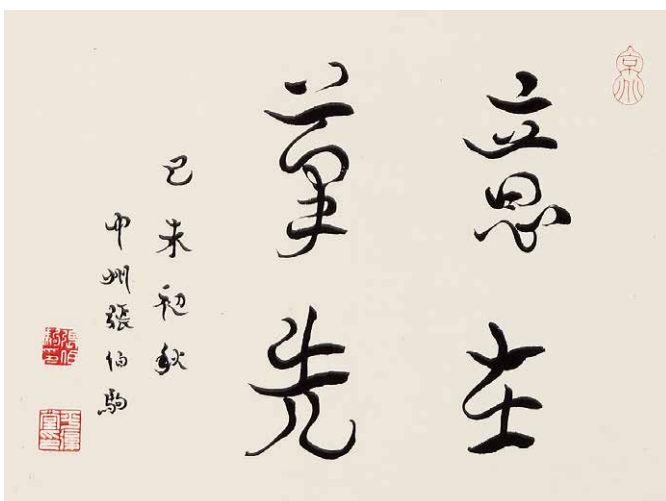 意在
筆先
己未初秋
中州張伯駒
京兆
張伯駒印
平復堂印